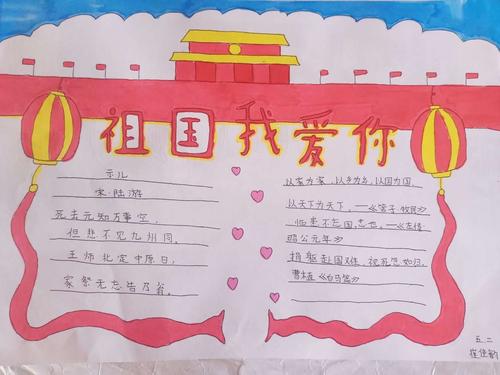 祖国我爱你
示儿
宋·陆游
死去元知万事空,
但悲不见九州同。
王师北定中原日,
家祭无忘告乃翁。
以家为家,以乡为乡,以国为国,
以天下为天下。——《管子·牧民》
临患不忘国,忠也。——《左传·
昭公元年》
捐躯赴国难,视死忽如归。
曹植《白马篇》
五.二
崔佳